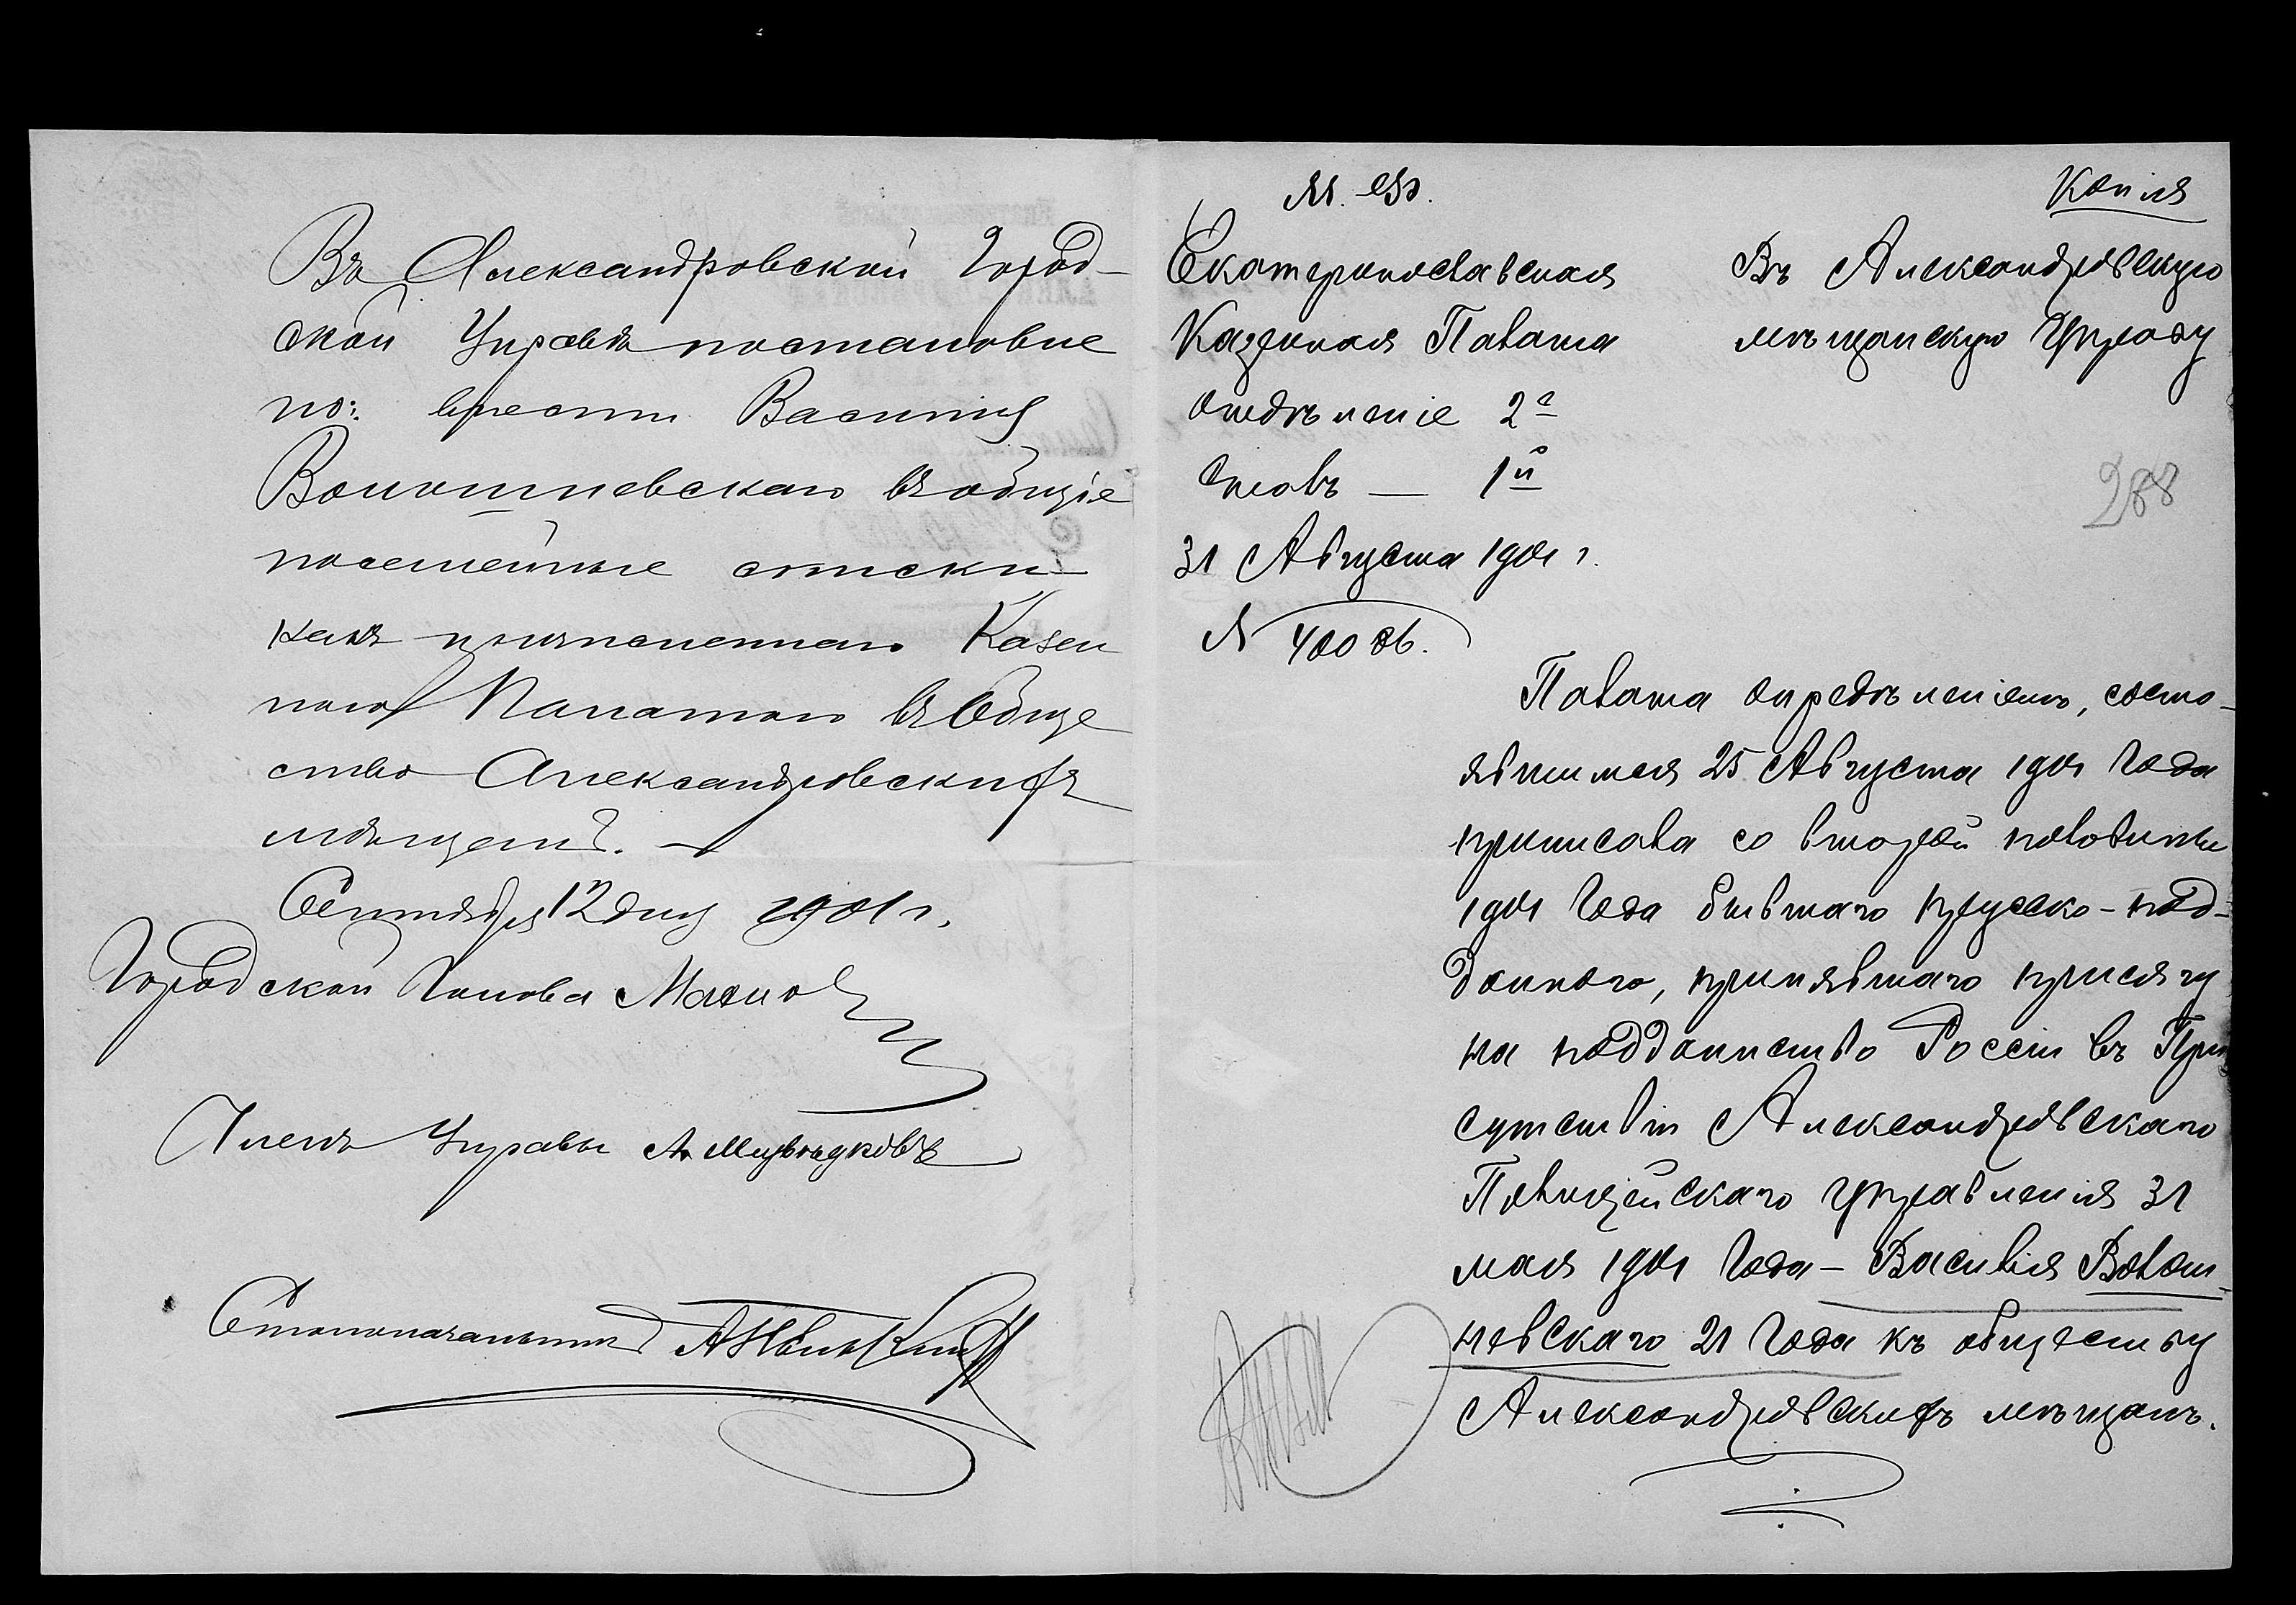 Въ Александровской Город-
ской Управѣ постановле
но: внести Василія
Волошневскаго въ общіе
посемейные списки
какъ причисленнаго Казен
ною Палатою въ Обще
ство Александровскихъ
мѣщанъ. —
Сентября 12 дня 1901 г.
Городской Голова
Членъ Управы
Столоначальникъ
М. Ф.
Копія
Екатеринославская
Казенная Палата
Отдѣленіе 2е
Столъ — 1й
31 Августа 1901 г.
№ 40086.
Въ Александровскую
мѣщанскую Управу
288
Палата опредѣленіемъ, состо-
явшимся 25 Августа 1901 года
приписала со второй половины
1901 года бывшаго прусско-под-
даннаго, принявшаго присягу
на подданство Россіи въ При
сутствіи Александровскаго
Полицейскаго Управленія 31
мая 1901 года — Василія Волош-
невскаго 21 года къ обществу
Александровскихъ мѣщанъ.